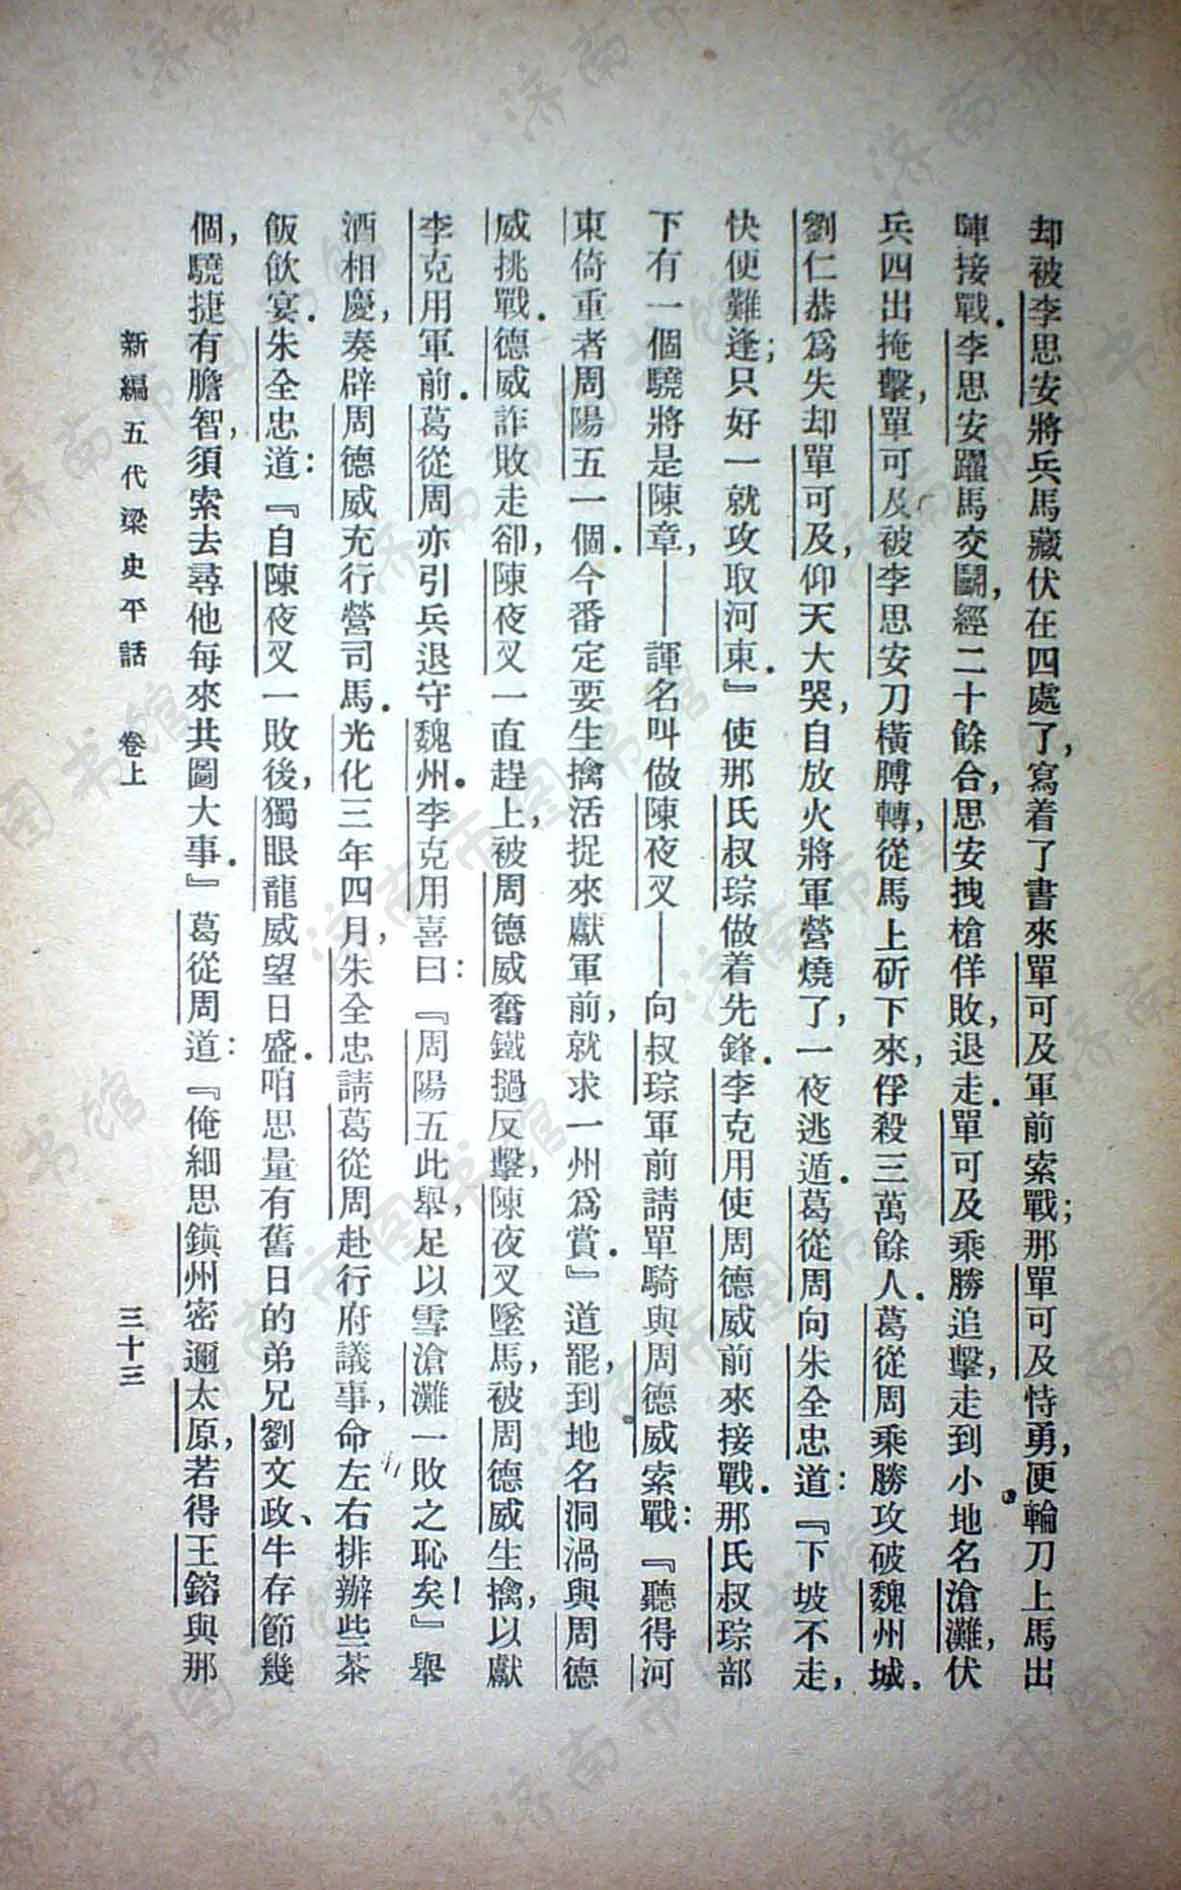 却被李思安將兵馬藏伏在四處了，寫着了書來單可及軍前索戰；那單可及恃勇，便輪刀上馬出
陣接戰．李思安躍馬交鬭，經二十餘合，思安拽槍佯敗，退走．單可及乘勝追擊，走到小地名滄灘，伏
兵四出掩擊，單可及被李思安刀橫膊轉，從馬上斫下來，俘殺三萬餘人．葛從周乘勝攻破魏州城．
劉仁恭爲失却單可及，仰天大哭，自放火將軍營燒了，一夜逃遁．葛從周向朱全忠道：『下坡不走，
快便難逢；只好一就攻取河東．』使那氏叔琮做着先鋒．李克用使周德威前來接戰．那氏叔琮部
下有一個驍將是陳章，——諢名叫做陳夜叉——向叔琮軍前請單騎與周德威索戰：『聽得河
東倚重者周陽五一個．今番定要生擒活捉來獻軍前，就求一州爲賞．』道罷，到地名洞渦與周德
威挑戰．德威詐敗走卻，陳夜叉一直趕上，被周德威奮鐵撾反擊，陳夜叉墜馬，被周德威生擒，以獻
李克用軍前．葛從周亦引兵退守魏州．李克用喜曰：『周陽五此舉，足以雪滄灘一敗之恥矣！』舉
酒相慶，奏辟周德威充行營司馬．光化三年四月，朱全忠請葛從周赴行府議事，命左右排辦些茶
飯飲宴．朱全忠道：『自陳夜叉一敗後，獨眼龍威望日盛．咱思量有舊日的弟兄劉文政、牛存節幾
個，驍捷有膽智，須索去尋他每來共圖大事．』葛從周道：『俺細思鎮州密邇太原，若得王鎔與那
新編五代梁史平話　卷上　三十三
济南市图书馆